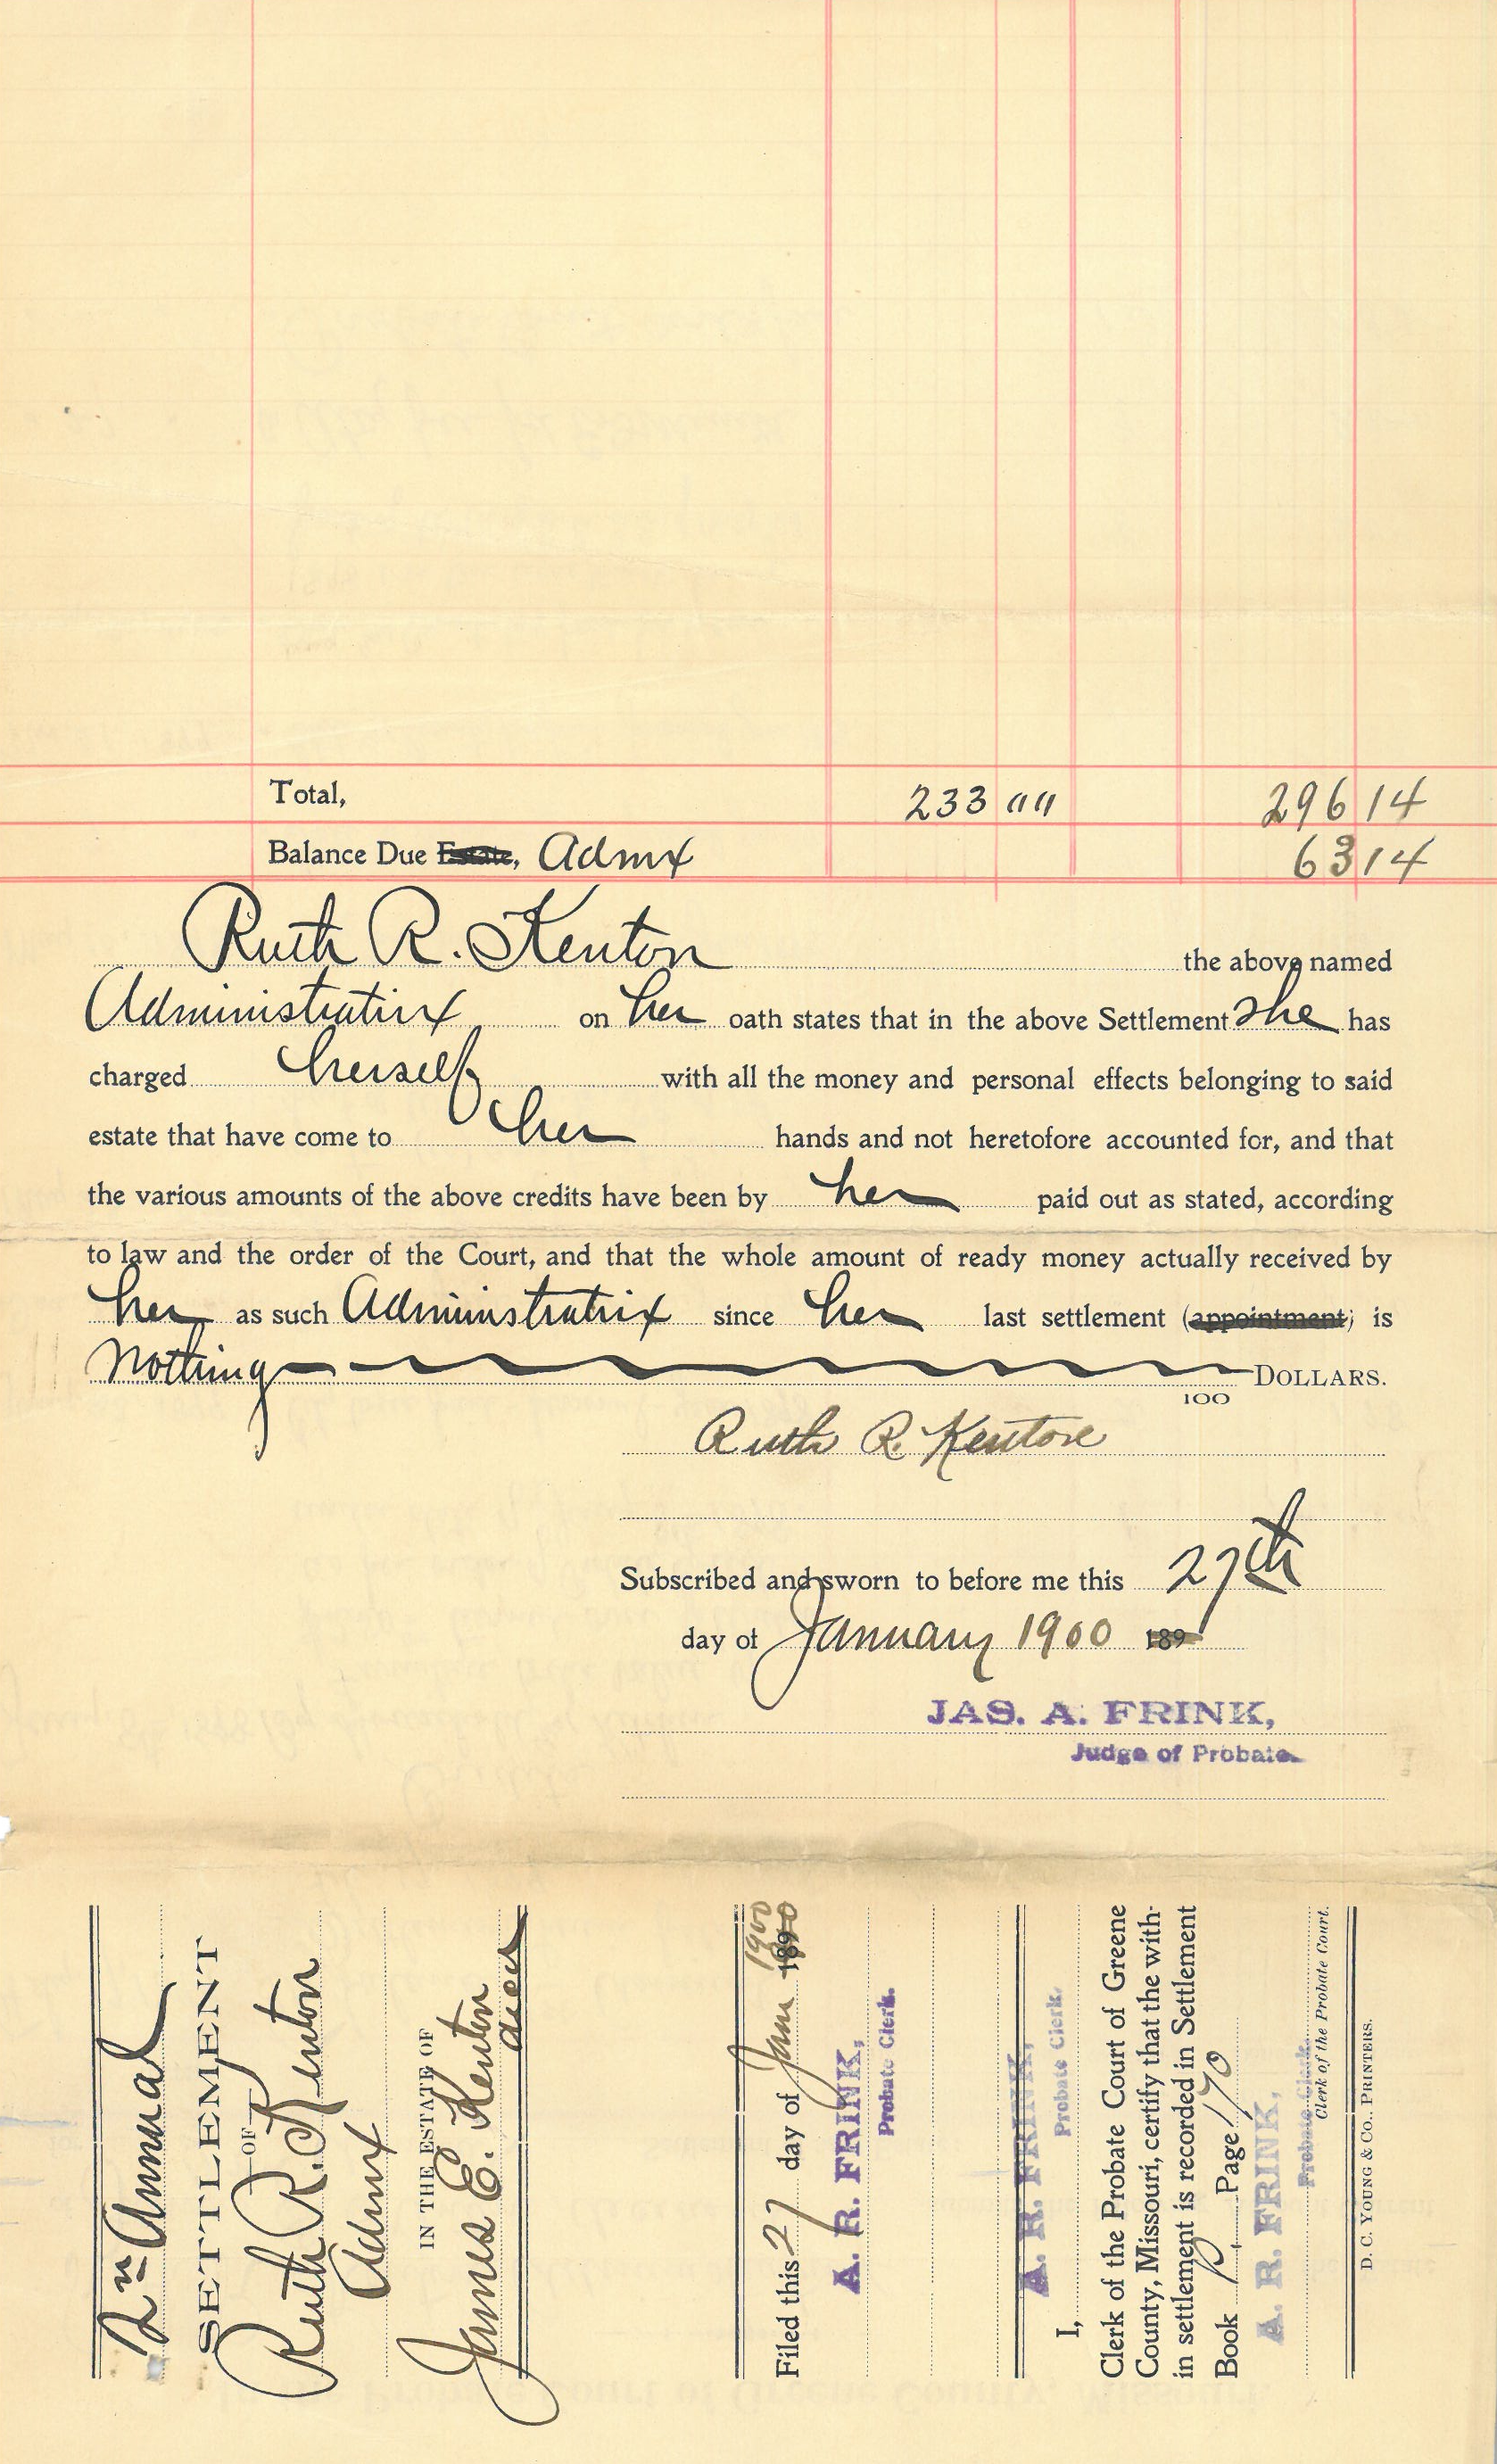 Total, 233 00 296 14
Balance Due Estate, Admx 63 14
Ruth R. Kenton the above named
Administratirx on her oath states that in the above Settlement she has
charged herself with all the money and personal effects belonging to said
estate that have come to her hands and not heretofore accounted for, and that
the various amounts of the above credits have been by her paid out as stated, according
to law and the order of the Court, and that the whole amount of ready money actually received by
her as such Administratrix since her last settlement (appointment) is
Nothing DOLLARS.
100
Ruth R. Kenton
Subscribed and sworn to before me this 27th
day of January 1900 189
JAS. A. FRINK,
Judge of Probate.
2n Annual
SETTLEMENT
OF
Ruth R. Kenton
Admx
IN THE ESTATE OF
James E. Kenton
decd
Filed this 27 day of Jan 1900 1890
A. R. FRINK,
Probate Clerk.
A. R. FRINK,
Probate Clerk.
I,
Clerk of the Probate Court of Greene
County, Missouri, certify that the with-
in settlement is recorded in Settlement
Book P. Page 170
A. R. FRINK,
Probate Clerk.
Clerk of the Probate Court.
D. C. YOUNG & CO., PRINTERS.